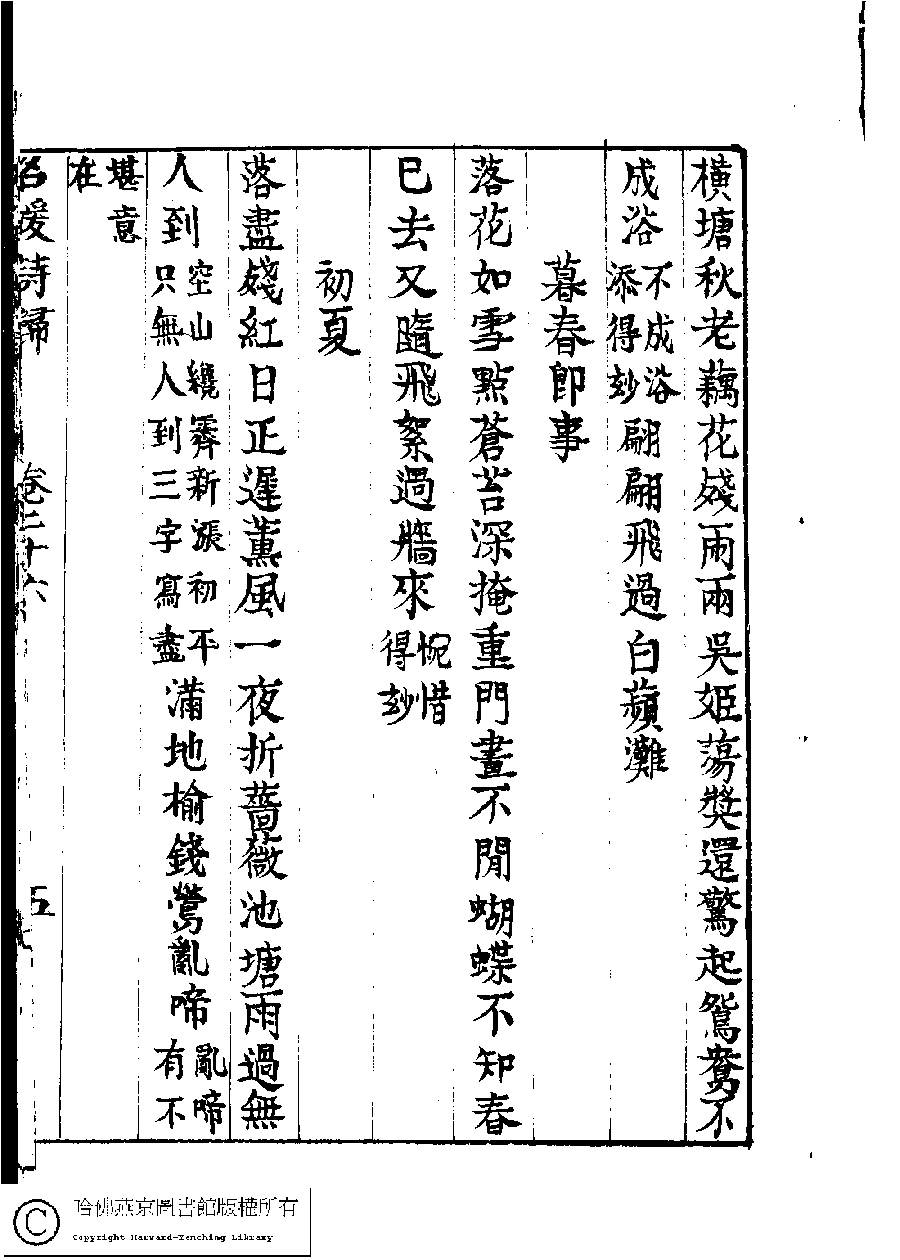 橫塘秋老藕花殘兩兩吳姬蕩槳還驚起鴛鴦不
成浴不成浴添得妙翩翩飛過白蘋灘
暮春即事
落花如雪點蒼苔深掩重門晝不開蝴蝶不知春
已去又隨飛絮過牆來惋惜得妙
初夏
落盡殘紅日正遲薰風一夜折薔薇池塘雨過無
人到空山纔霽新漲初平只無人到三字寫盡滿地榆錢鶯亂啼亂啼有不
堪意在
名媛詩歸 卷二十六 五
哈佛燕京圖書館版權所有
Copyright Harvard-Yenching Library